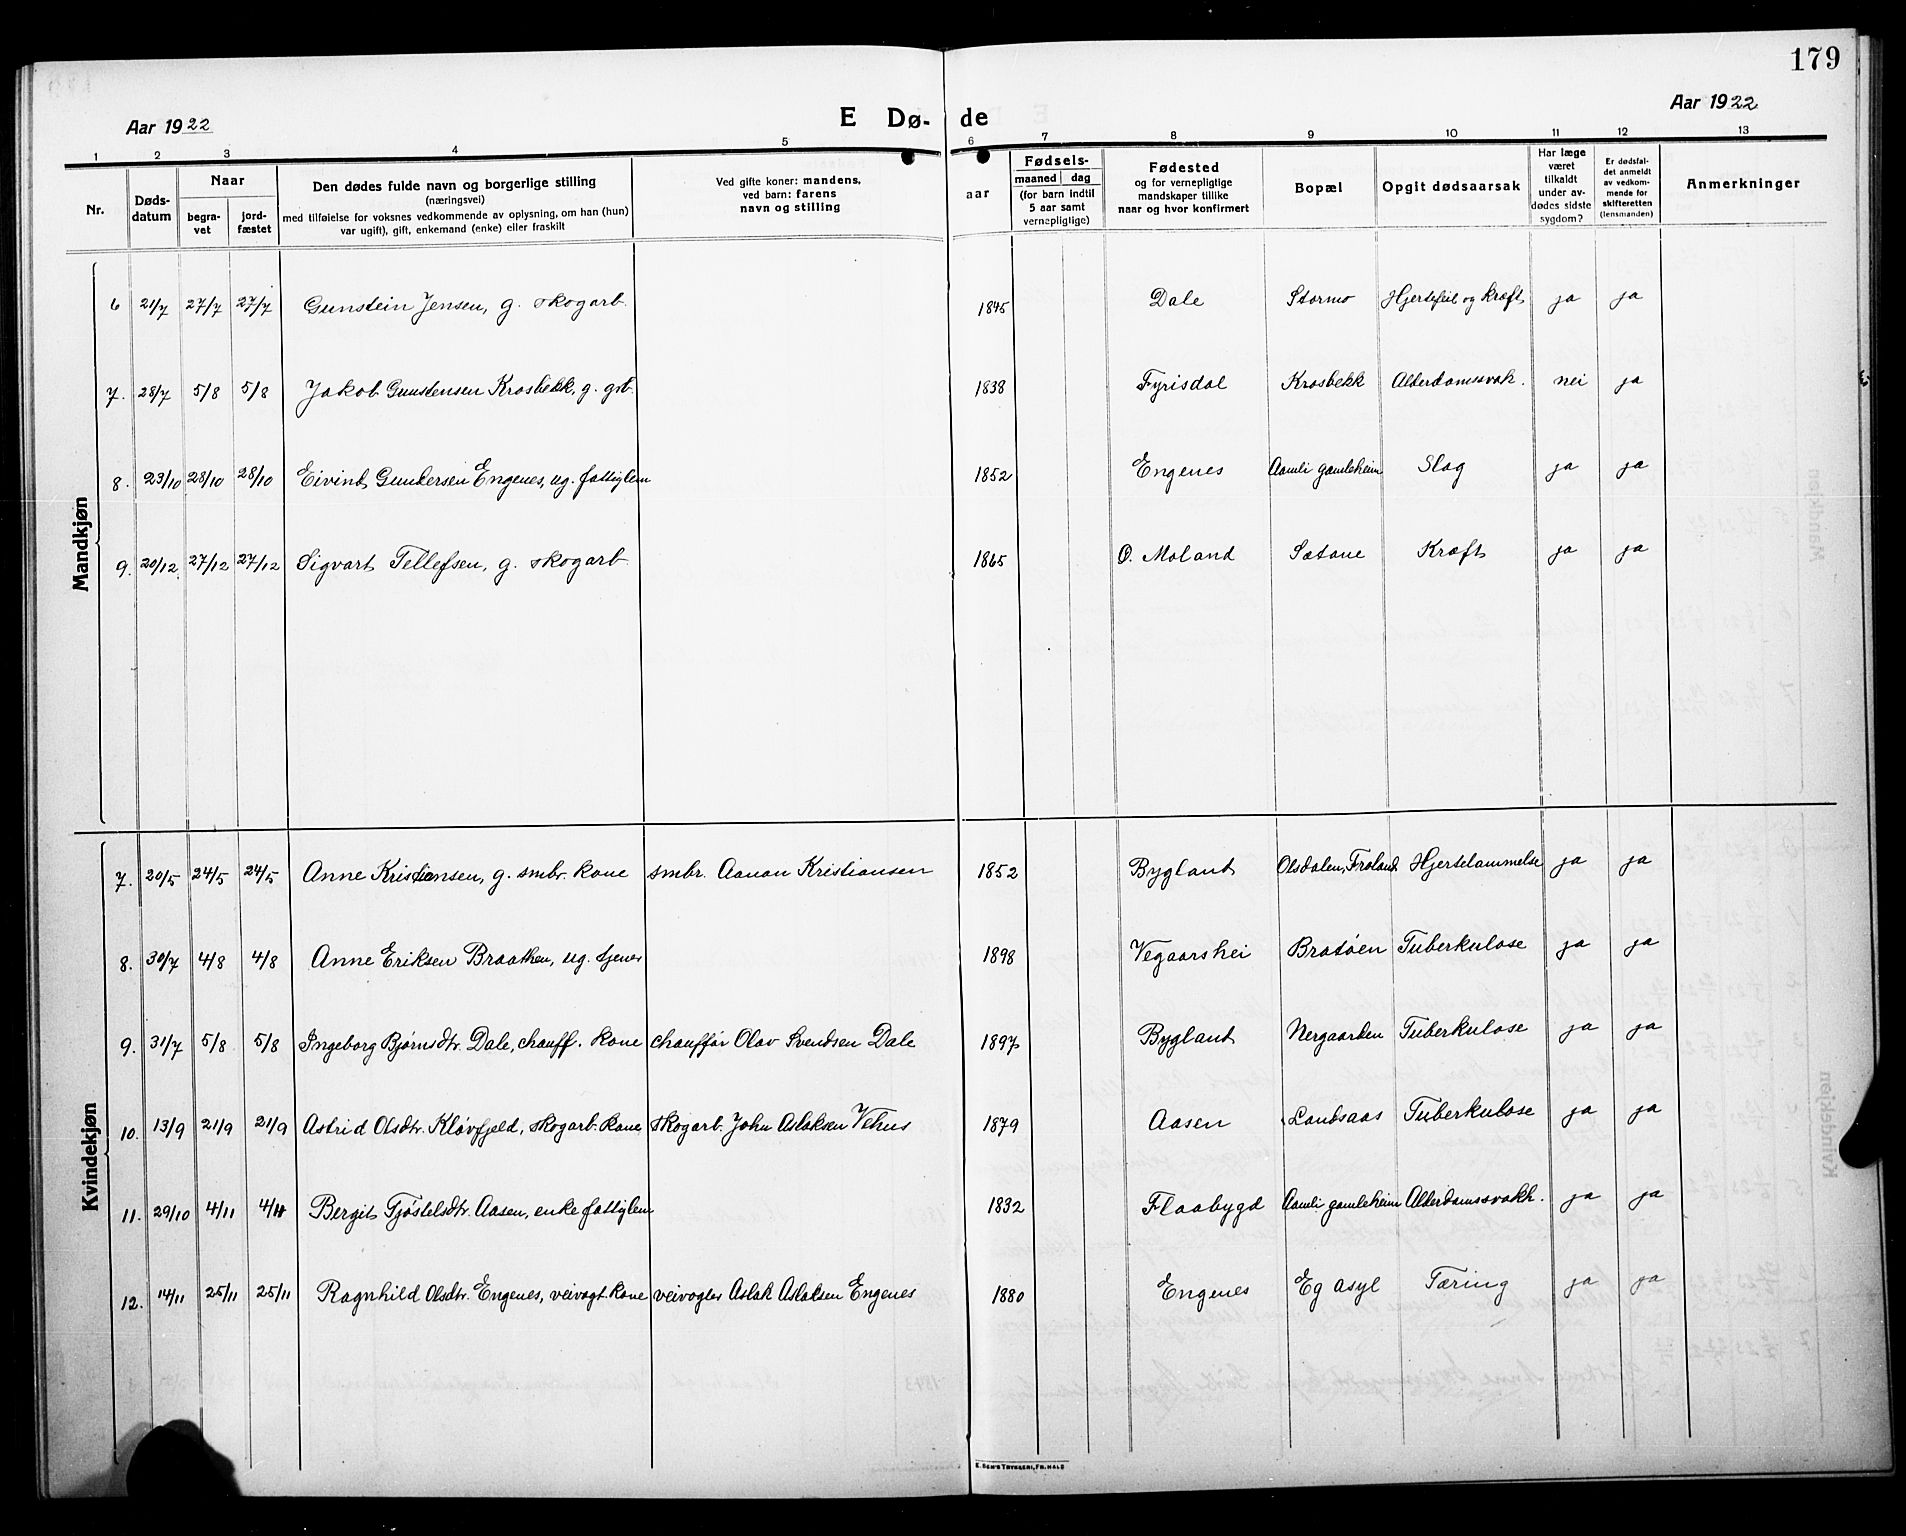 179
Aar 1922
E Dø- de
Aar 1922
1 2 3 4 5 6 7 8 9 10 11 12 13
Nr.
Døds-
datum
Naar
begra-
vet
jord-
fæstet
Den dødes fulde navn og borgerlige stilling
(næringsvei)
med tilføielse for voksnes vedkommende av oplysning, om han (hun)
var ugift), gift, enkemand (enke) eller fraskilt
Ved gifte koner: mandens,
ved barn: farens
navn og stilling
aar
Fødsels-
maaned dag
(for barn indtil
5 aar samt
vernepligtige)
Fødested
og for vernepligtige
mandskaper tillike
naar og hvor konfirmert
Bopæl
Opgit dødsaarsak
Har læge
været
tilkaldt
under av-
dødes sidste
sygdom?
Er dødsfal-
det anmeldt
av vedkom-
mende for
skifteretten
(lensmanden)
Anmerkninger
Mandkjøn
6 21/7 27/7 27/7 Gunstein Jensen, g. skogarb. 1845 Dale Stormo Hjertefeil og kræft ja ja
7. 28/7 5/8 5/8 Jakob Gunstensen Krosbekk, g. grb. 1838 Fyrisdal Krosbekk Alderdomssvak. nei ja
8. 23/10 28/10 28/10 Eivind Gundersen Engenes, ug. fattiglem 1852 Engenes Aamli gamleheim Slag ja ja
9. 20/12 27/12 27/12 Sigvart Tellefsen, g. skogarb. 1865 O. Moland Sætane Kræft ja ja
Kvindekjøn
7. 20/5 24/5 24/5 Anne Kristiansen, g. smbr. kone smbr. Aanon Kristiansen 1852 Bygland Olsdalen, Froland Hjertelammelse ja ja
8. 30/7 4/8 4/8 Anne Eriksen Braathen, ug. tjenes 1898 Vegaarshei Bratøen Tuberkulose ja ja
9. 31/7 5/8 5/8 Ingeborg Bjørnsdtr. Dale, chauff. kone chauffør Olav Svendsen Dale 1897 Bygland Nergaarden Tuberkulose ja ja
10. 13/9 21/9 21/9 Astrid Olsdtr. Kløvfjeld, skogarb. kone skogarb. John Aslaksen Vehus 1879 Aasen Landsaas Tuberkulose ja ja
11. 29/10 4/11 4/11 Bergit Tjøstelsdtr. Aasen, enke fattiglem 1832 Flaabygd Aamli gamleheim Alderdomssvakh. ja ja
12. 14/11 25/11 25/11 Ragnhild Olsdtr. Engenes, veivogt. kone veivogter Aslak Aslaksen Engenes 1880 Engenes Eg asyl Tæring ja ja
E. SEM'S TRYKKERI, FR.HALD